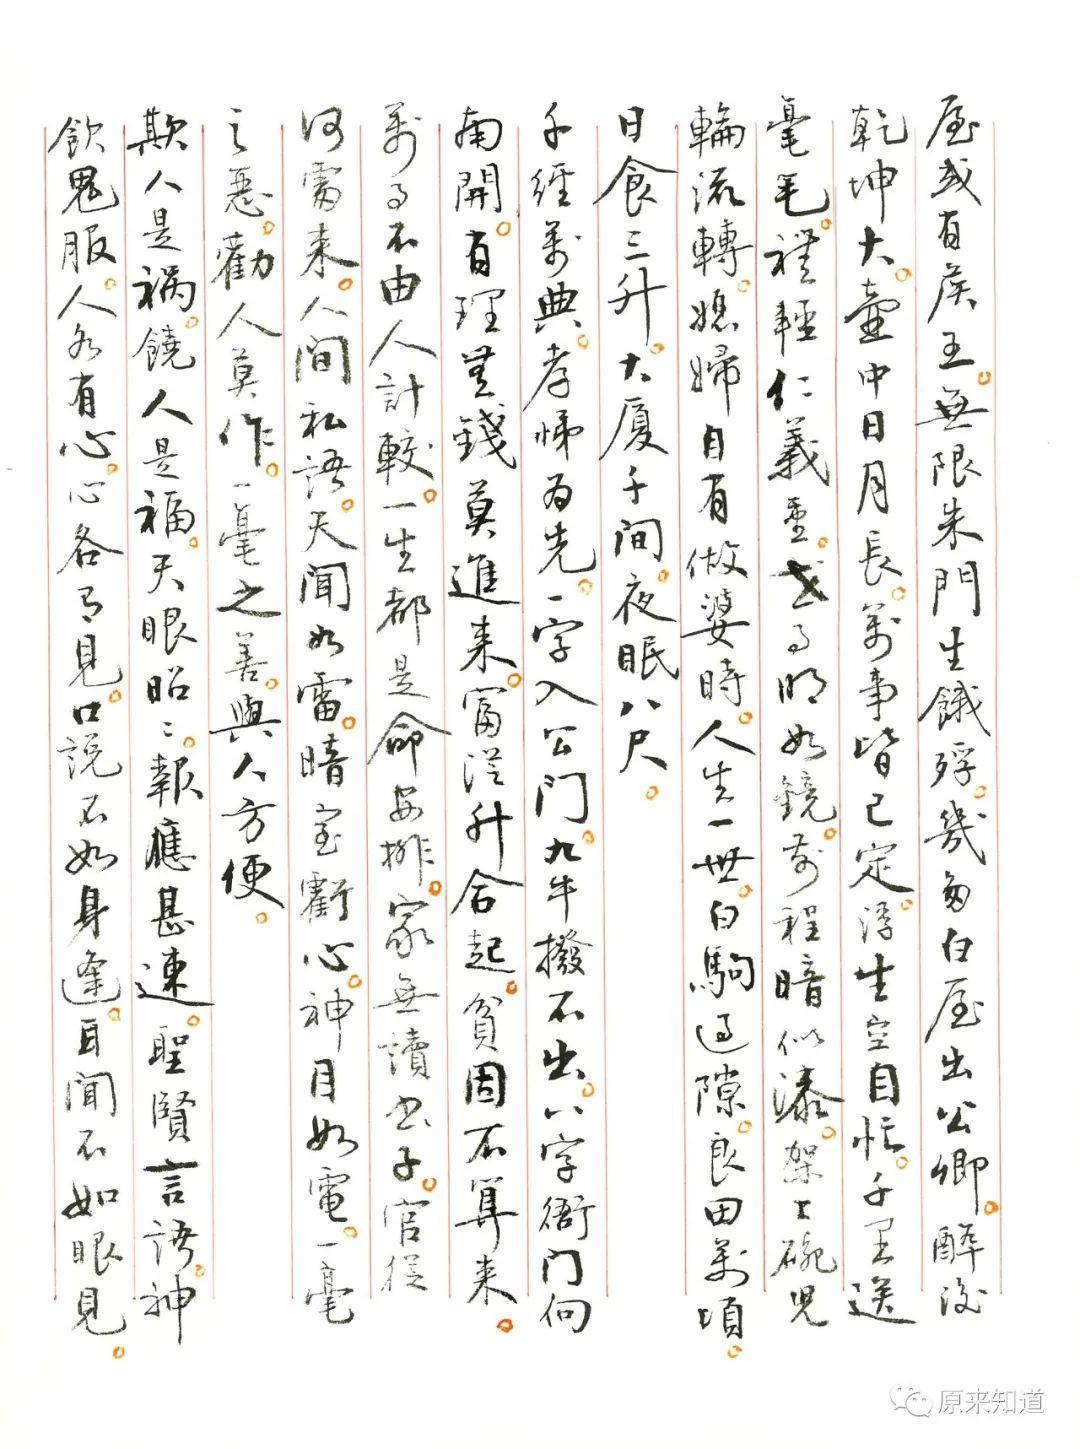 屋或有侯王。無限朱門生餓殍。幾多白屋出公卿。醉後
乾坤大。壷中日月長。萬事皆已定。浮生空自忙。千里送
毫毛。禮輕仁義重。世事明如鏡。前程暗似漆。架上碗兒
輪流轉。媳婦自有做婆時。人生一世。白駒過隙。良田萬頃。
日食三升。大廈千間。夜眠八尺。
千經萬典。孝悌為先。一字入公門。九牛撥不出。八字衙門向
南開。有理無錢莫進来。富從升合起。貧因不算来。
萬事不由人計較。一生都是命安排。家無讀書子。官從
何處来。人間私語。天聞如雷。暗室虧心。神目如電。一毫
之惡。勸人莫作。一毫之善。與人方便。
欺人是禍。饒人是福。天眼昭〻。報應甚速。聖賢言語。神
欽鬼服。人各有心。心各有見。口說不如身逢。耳聞不如眼見。
原来知道